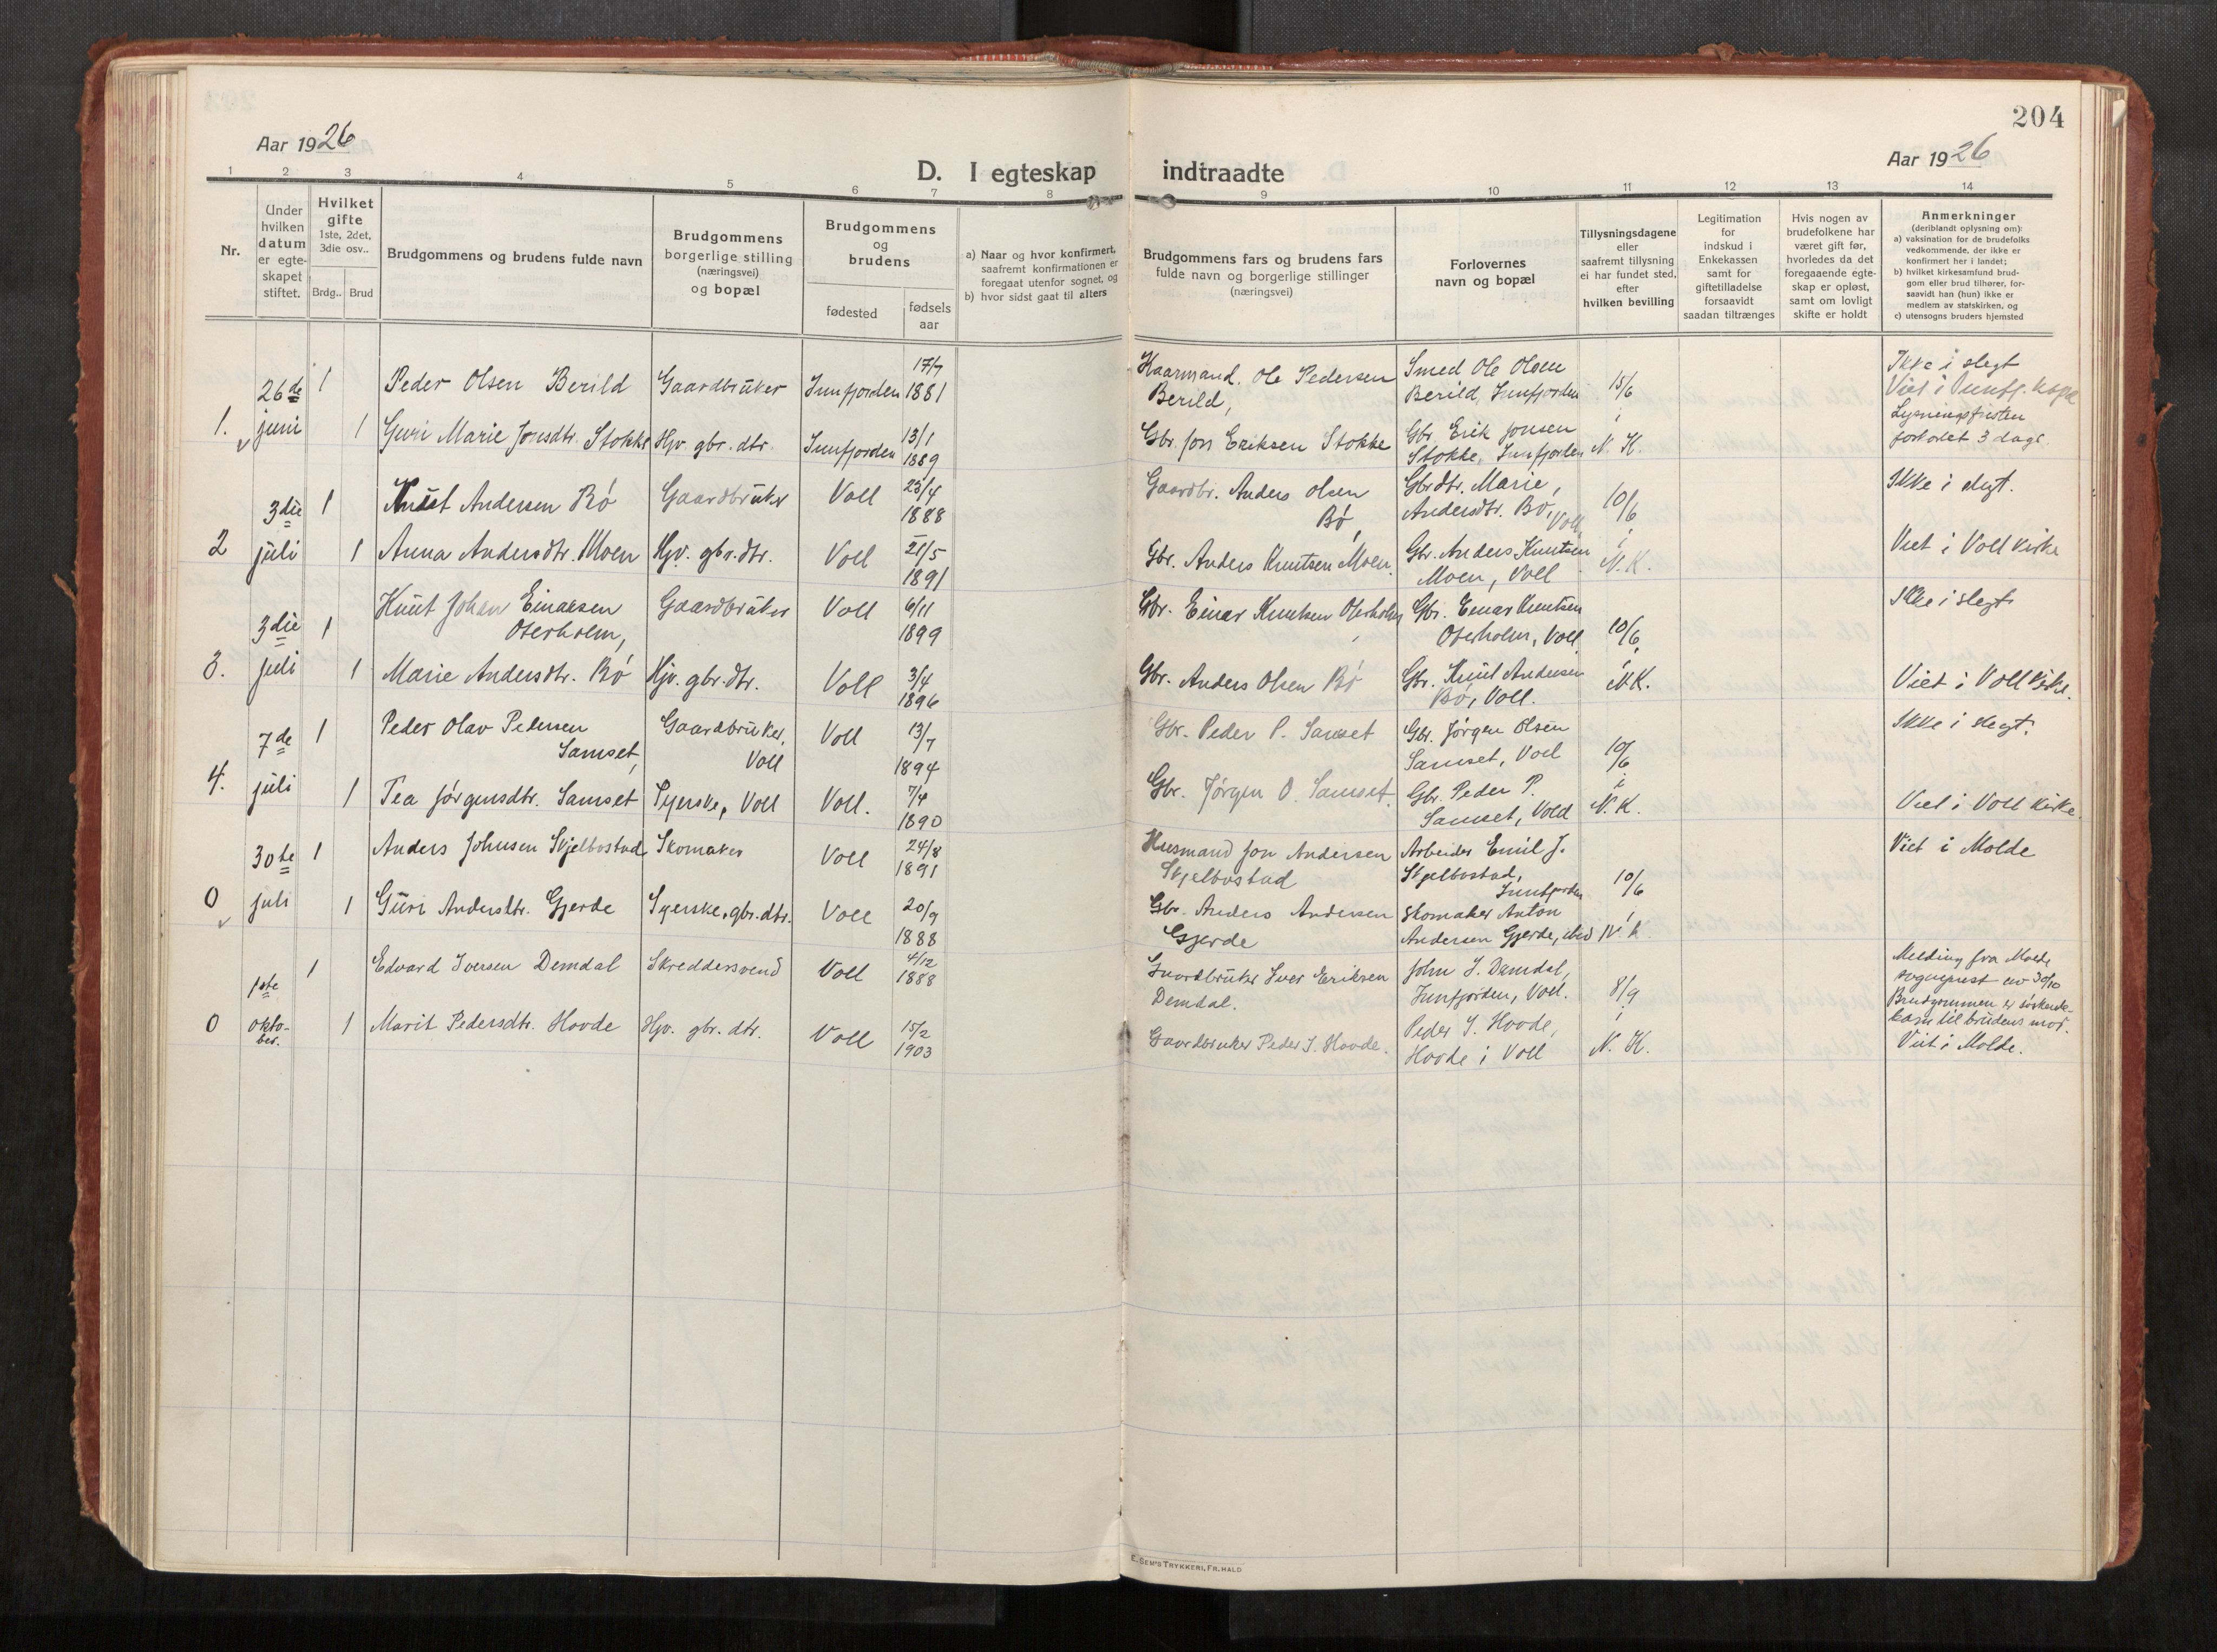 204
Aar 1926
Aar 1926
D. I egteskap indtraadte
1 2 3 4 5 6 7 8 9 10 11 12 13 14
Nr.
Under
hvilken
datum
er egte-
skapet
stiftet.
Hvilket
gifte
1ste, 2det,
3die osv..
Brdg.. Brud
Brudgommens og brudens fulde navn
Brudgommens
borgerlige stilling
(næringsvei)
og bopæl
Brudgommens
og
brudens
fødested
fødsels
aar
a) Naar og hvor konfirmert,
saafremt konfirmationen er
foregaat utenfor sognet, og
b) hvor sidst gaat til alters
Brudgommens fars og brudens fars
fulde navn og borgerlige stillinger
(næringsvei)
Forlovernes
navn og bopæl
Tillysningsdagene
eller
saafremt tillysning
ei har fundet sted,
efter
hvilken bevilling
Legitimation
for
indskud i
Enkekassen
samt for
giftetilladelse
forsaavidt
saadan tiltrænges
Hvis nogen av
brudefolkene har
været gift før,
hvorledes da det
foregaaende egte-
skap er opløst,
samt om lovligt
skifte er holdt
Anmerkninger
(deriblandt oplysning om):
a) vaksination for de brudefolks
vedkommende, der ikke er
konfirmert her i landet;
b) hvilket kirkesamfund brud-
gom eller brud tilhører, for-
saavidt han (hun) ikke er
medlem av statskirken, og
c) utensogns bruders hjemsted
1.
26de
juni
1
Peder Olsen Berild
Gaardbruker
Innfjorden
17/7
1881
Haarmand. Ole Pedersen
Berild,
Smed Ole Olsen
Berild, Innfjorden
15/6
Ikke i slegt
Viet i Innfj. kape
1
Guri Marie Jonsdtr. Stokke
Hjv. gbr. dtr.
Innfjorden
13/1
1889
Gbr. Jon Eriksen Stokke
Gbr. Erik Jonsen
Stokke, Innfjorden
i
N. K.
Lysningsfristen
forkortet 3 dage.
2
3die
juli
1
Knut Andersen Bø
Gaardbruker
Voll
25/4
1888
Gaardbr. Anders Olsen
Bø,
Gbrdtr. Marie,
Andersdtr. Bø, Voll
10/6
Ikke i slegt.
1
Anna Andersdtr. Moen
Hjv. gbr. dtr.
Voll
21/5
1891
Gbr. Anders Knutsen Moen.
Gbr. Anders Knutsen
Moen, Voll
i
N. K.
Viet i Voll kirke
3.
3die
juli
1
Knut Johan Einarsen
Oterholm,
Gaardbruker
Voll
6/11
1899
Gbr. Einar Knutsen Oterholm
Gbr. Einar Knutsen
Oterholm, Voll
10/6
Ikke i slegt
1
Marie Andersdtr. Bø
Hjv. gbr. dtr.
Voll
3/4
1896
Gbr. Anders Olsen Bø
Gbr. Knut Andersen
Bø, Voll.
i
N.K.
Viet i Voll kirke.
4.
7de
juli
1
Peder Olav Pedersen
Samset,
Gaardbruker,
Voll
Voll
13/7
1894
Gbr. Peder P. Samset
Gbr. Jørgen Olsen
Samset, Voll
10/6
Ikke i slegt.
1
Tea Jørgensdtr. Samset
Syerske, Voll
Voll.
7/4
1890
Gbr. Jørgen O. Samset.
Gbr. Peder P.
Samset, Vold
i
N. K.
Viet i Voll kirke.
0
30te
juli
1
Anders Johnsen Skjelbostad
Skomaker
Voll
24/8
1891
Husmand Jon Andersen
Skjelbostad
Arbeider Emil J.
Skjelbostad,
Innfjorden
10/6
Viet i Molde
1
Guri Andersdtr. Gjerde
Syerske, gbr. dtr.
Voll
20/9
1888
Gbr. Anders Andersen
Gjerde
Skomaker Anton
Andersen Gjerde, ibid
i
N. K.
0
1ste
okto-
ber.
1
Edvard Iversen Demdal
Skreddersvend
Voll
4/12
1888
Gaardbruker Iver Eriksen
Demdal.
John I. Demdal,
Innfjorden, Voll.
8/9
Melding fra Molde
sogneprest av 30/10
Brudgommen er søskende-
barn til brudens mor.
1
Marit Pedersdtr. Hovde
Hjv. gbr. dtr.
Voll
15/2
1903
Gaardbruker Peder J. Hovde.
Peder J. Hovde,
Hovde i Voll
i
N. K.
Viet i Molde.
E. SEM'S TRYKKERI, FR.HALD